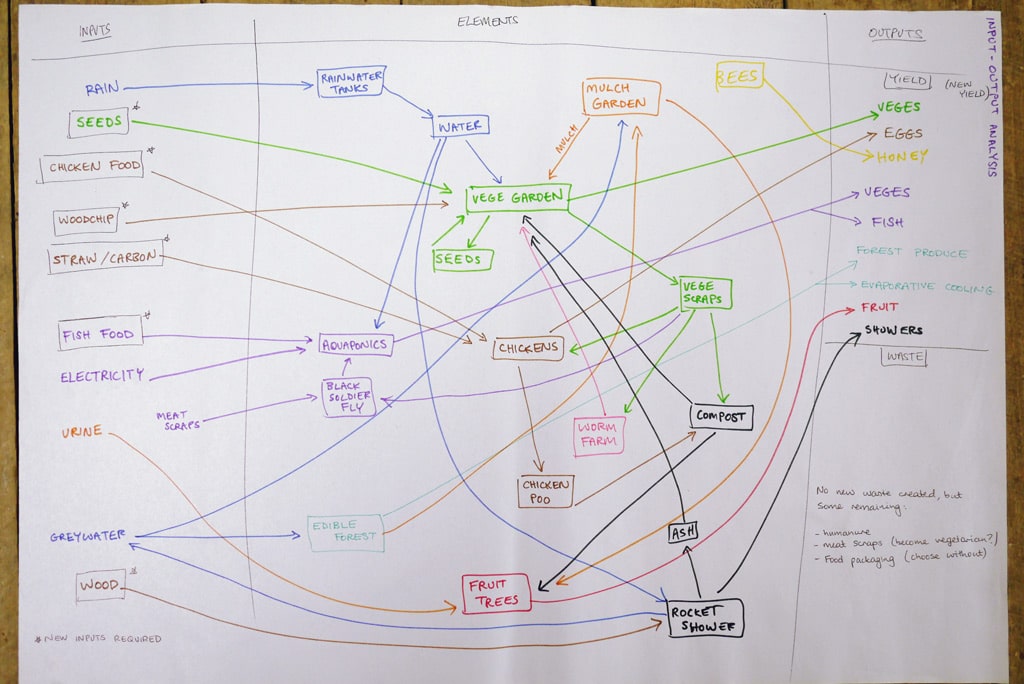 INPUTS
ELEMENTS
OUTPUTS
INPUT-OUTPUT ANALYSIS
RAIN
SEEDS *
CHICKEN FOOD *
WOODCHIP *
STRAW/CARBON *
FISH FOOD *
ELECTRICITY
MEAT
SCRAPS
URINE
GREYWATER
WOOD *
* NEW INPUTS REQUIRED
RAINWATER
TANKS
WATER
MULCH
GARDEN
BEES
MULCH
VEGE GARDEN
SEEDS
VEGE
SCRAPS
AQUAPONICS
CHICKENS
BLACK
SOLDIER
FLY
WORM
FARM
COMPOST
CHICKEN
POO
EDIBLE
FOREST
ASH
FRUIT
TREES
ROCKET
SHOWER
YIELD (NEW
YIELD)
VEGES
EGGS
HONEY
VEGES
FISH
FOREST PRODUCE
EVAPORATIVE COOLING
FRUIT
SHOWERS
WASTE
No new waste created, but
some remaining:
- humanure
- meat scraps (become vegetarian?)
- Food packaging (choose without)